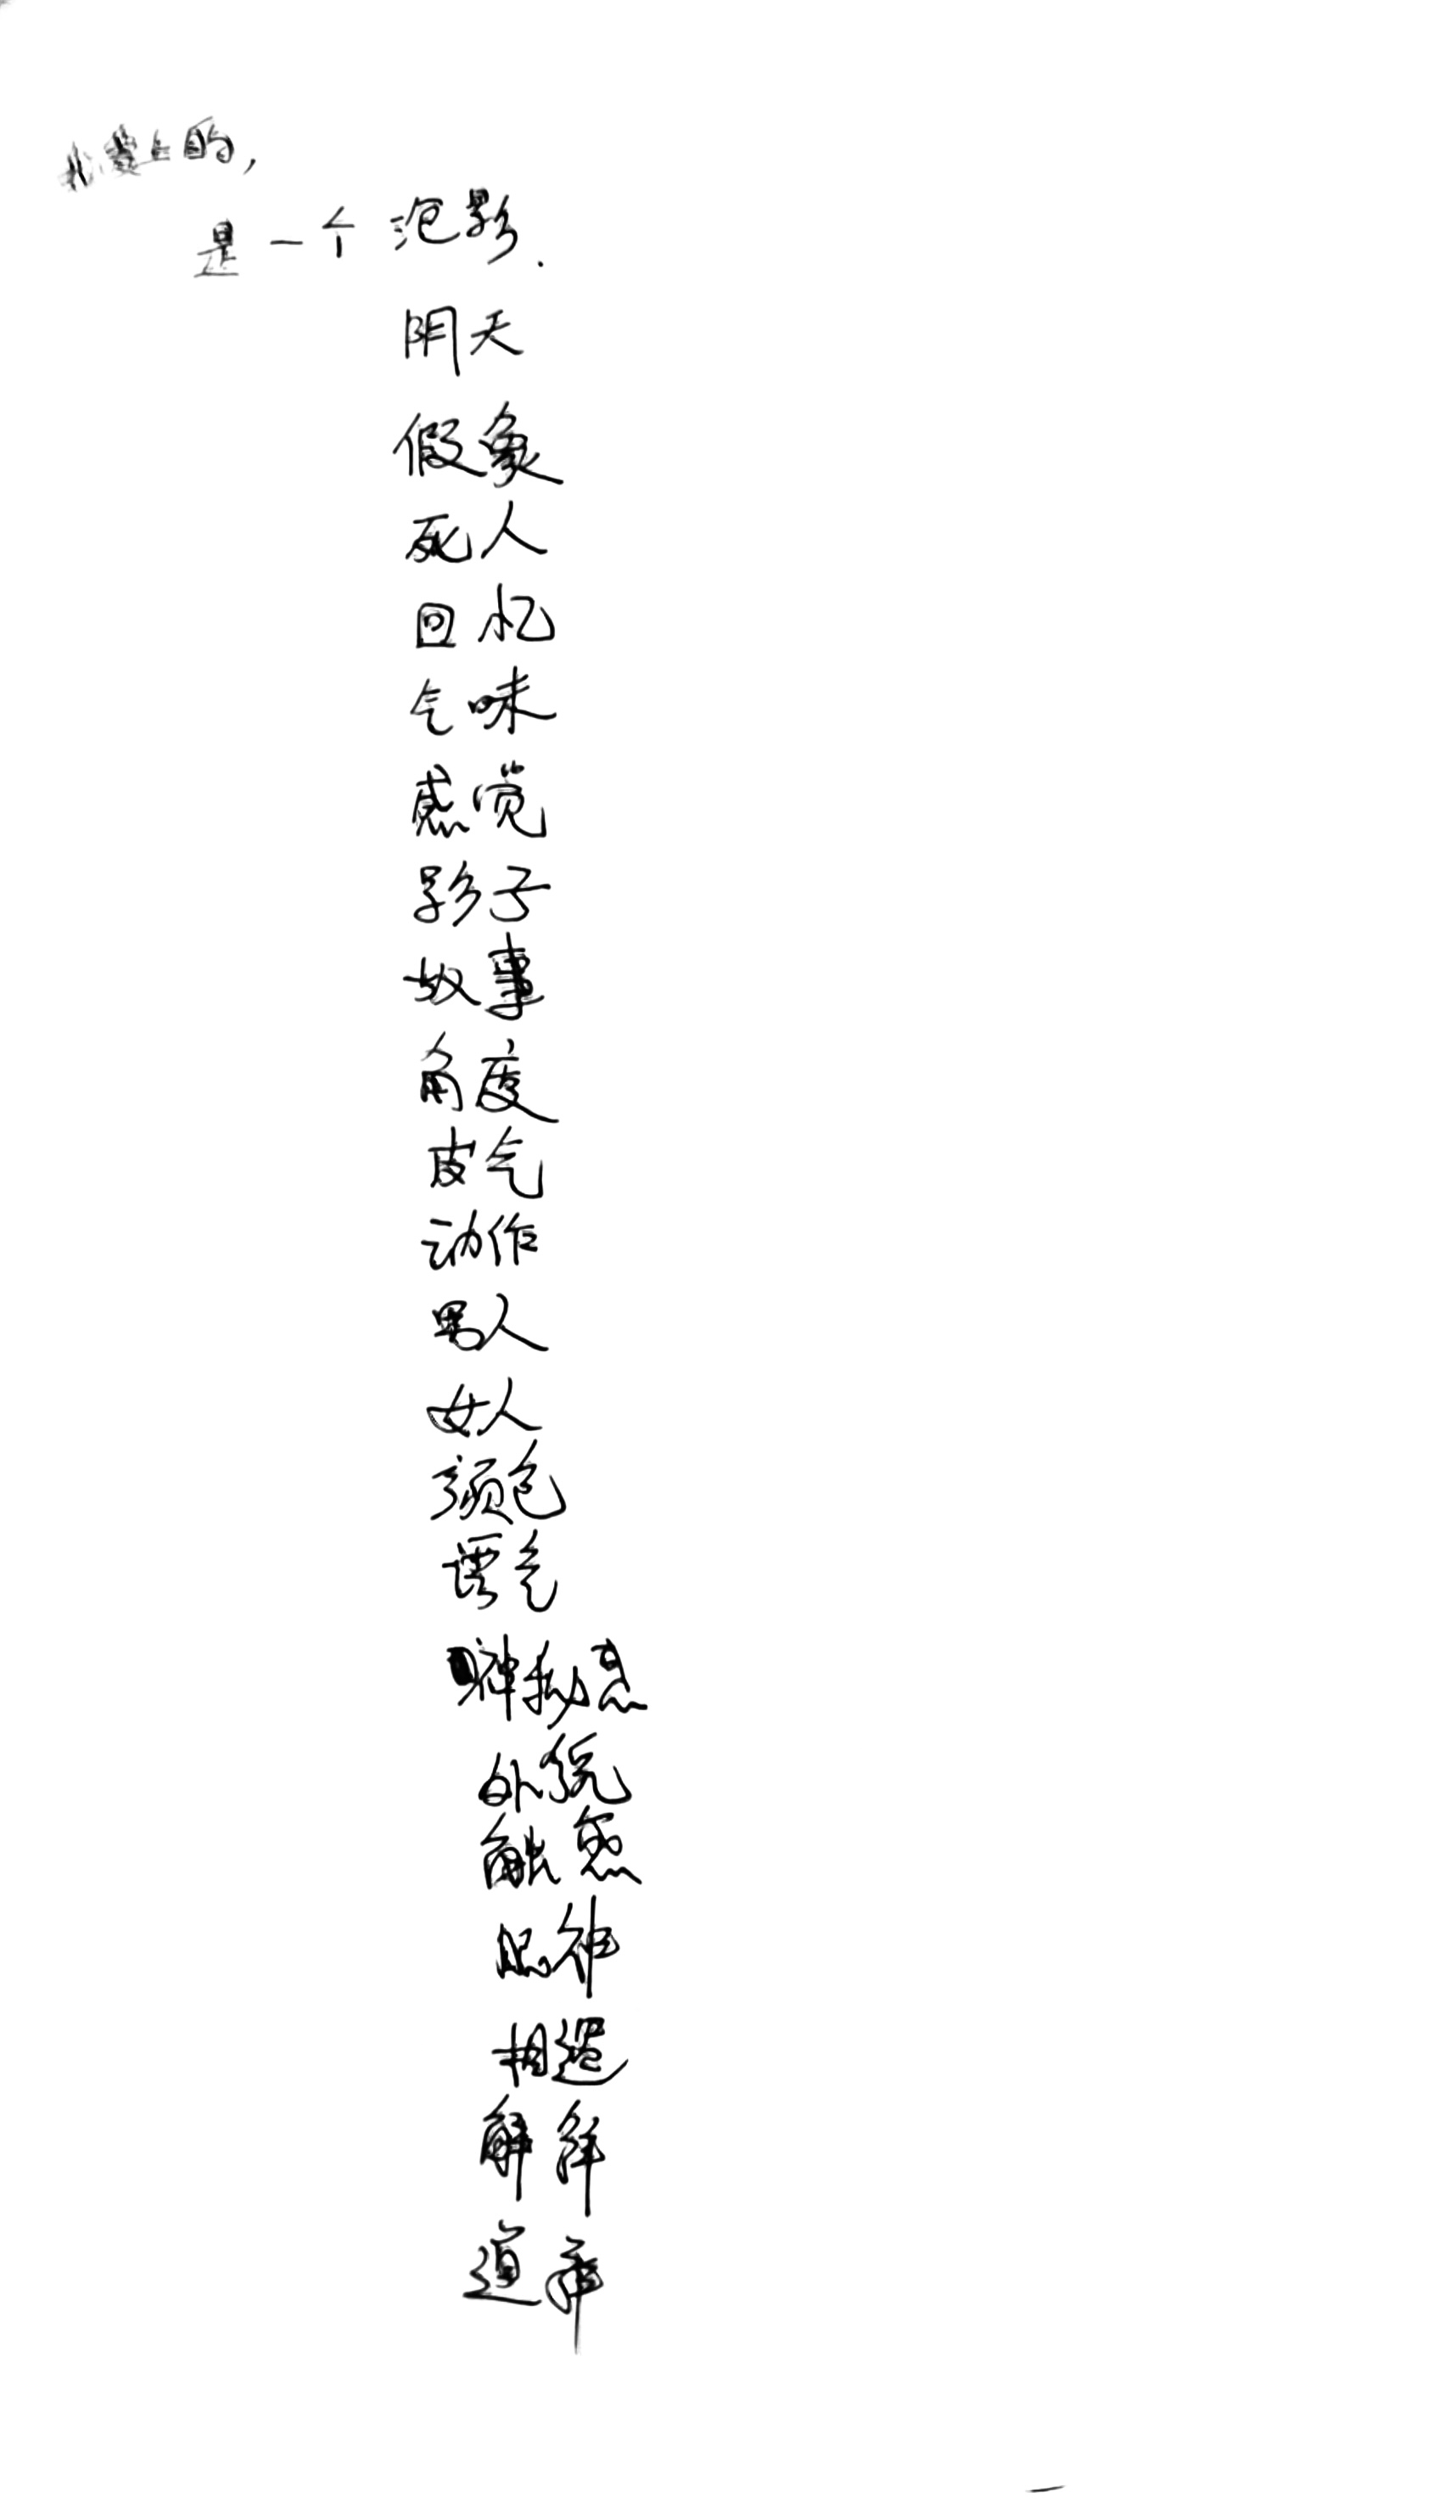 我爱上的,
是一个泡影.
阴天
假象
死人
回忆
气味
感觉
影子
故事
角度
皮气
动作
男人
女人
颜色
语气
神秘感
外貌
触感
眼神
相遇
解释
道